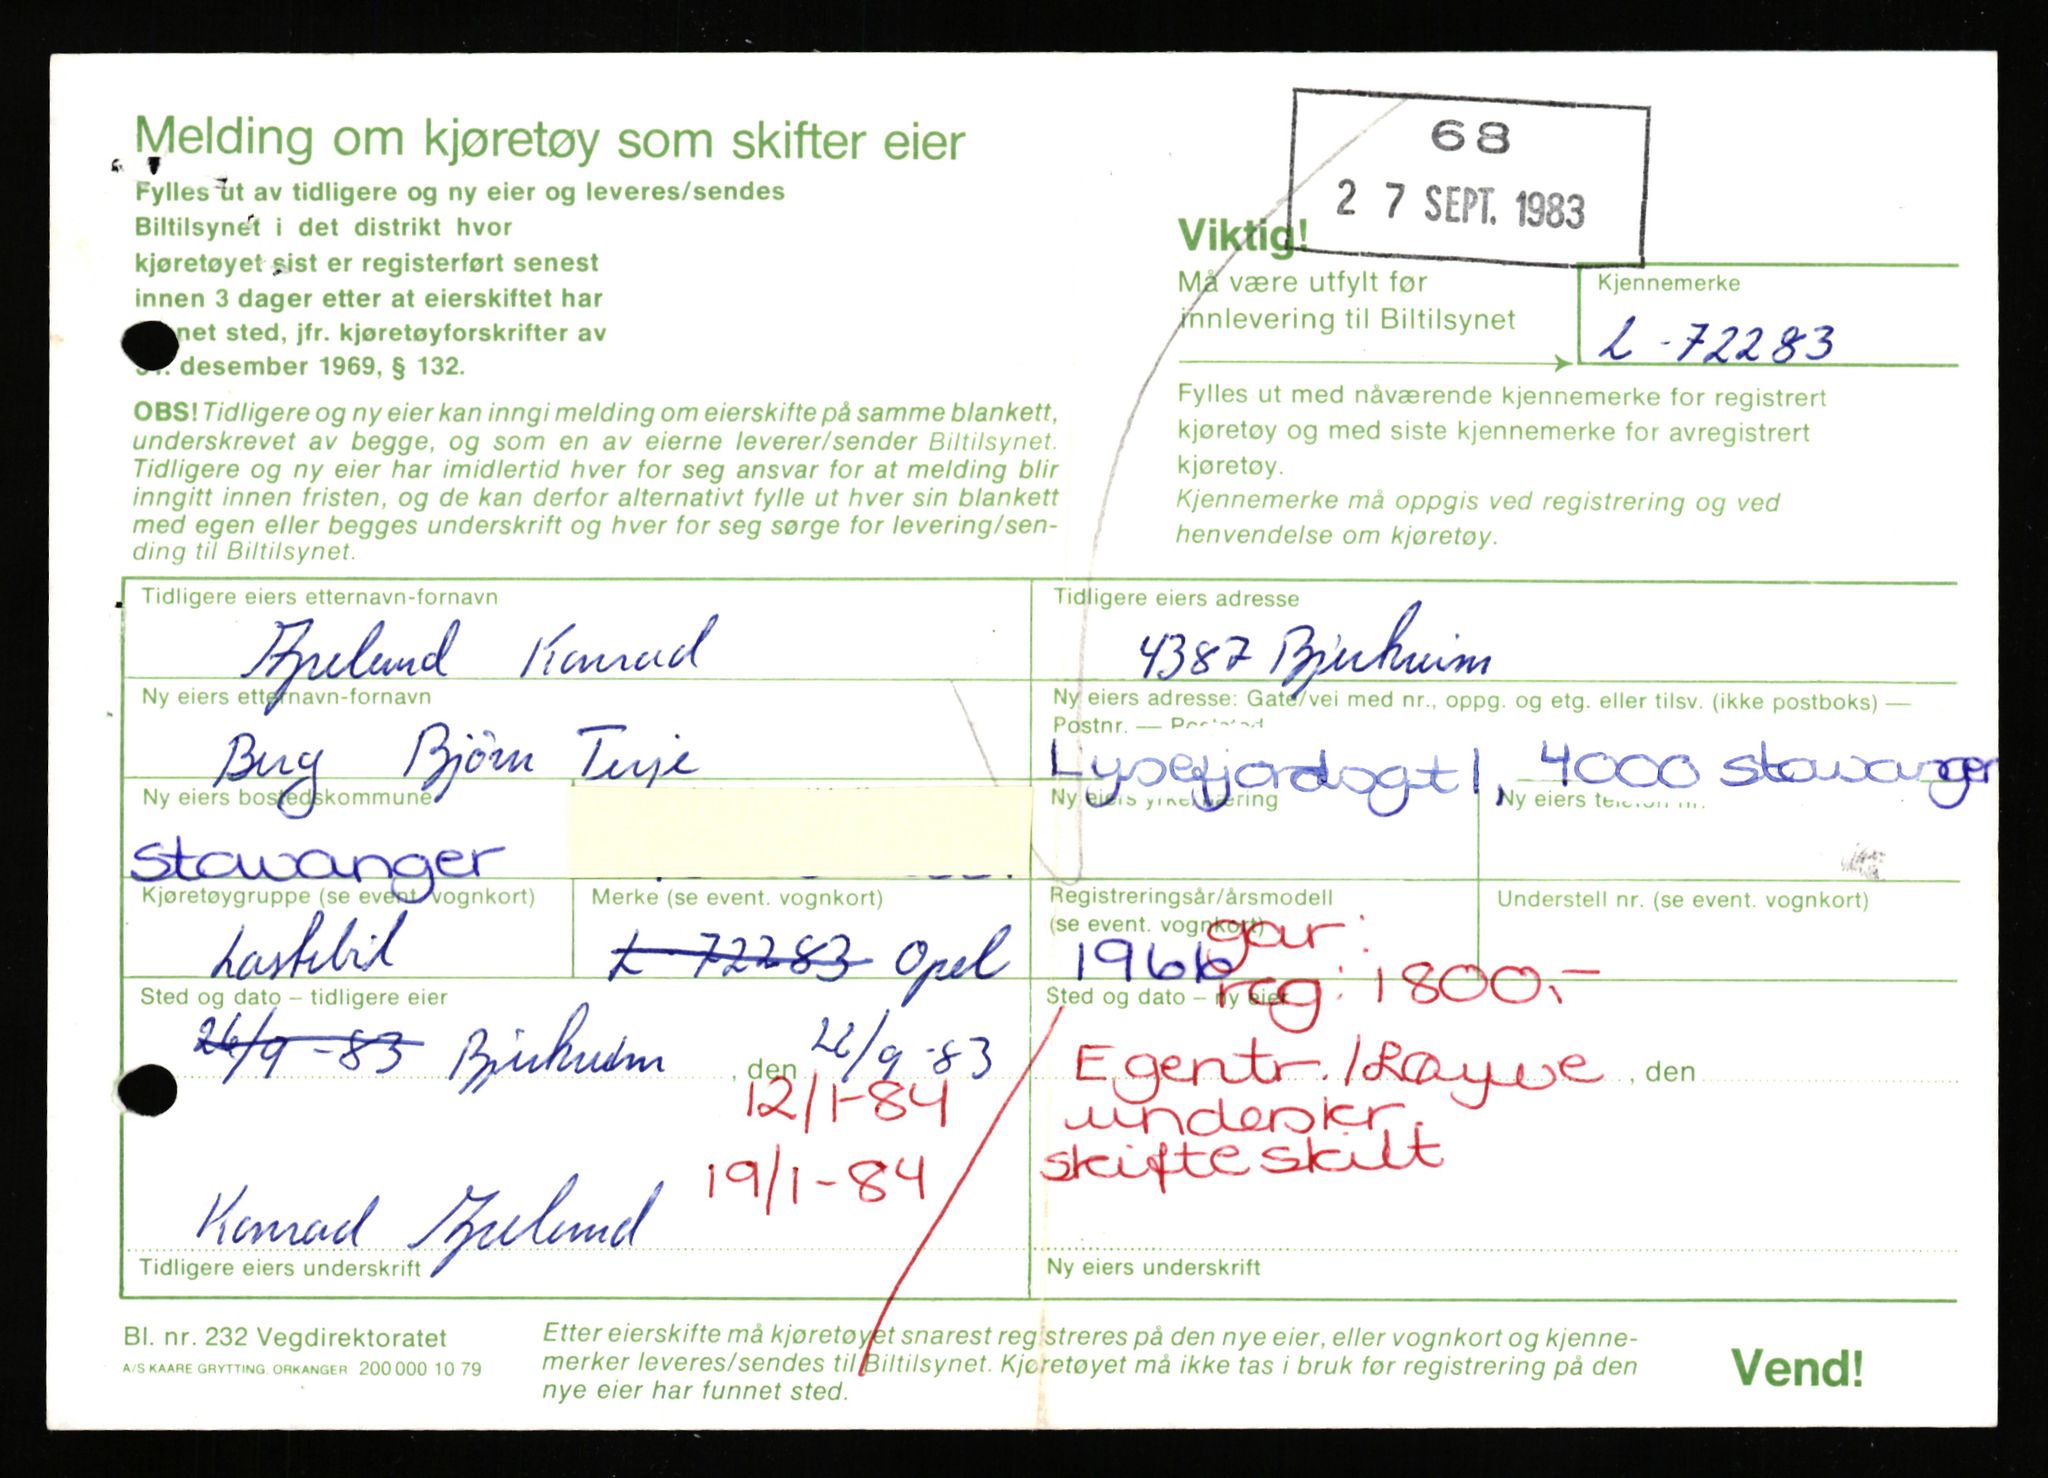 68
27 SEPT. 1983
Melding om kjøretøy som skifter eier
Fylles ut av tidligere og ny eier og leveres/sendes
Biltilsynet i det distrikt hvor
kjøretøyet sist er registerført senest
innen 3 dager etter at eierskiftet har
net sted, jfr. kjøretøyforskrifter av
desember 1969, § 132.
OBS! Tidligere og ny eier kan inngi melding om eierskifte på samme blankett,
underskrevet av begge, og som en av eierne leverer/sender Biltilsynet.
Tidligere og ny eier har imidlertid hver for seg ansvar for at melding blir
inngitt innen fristen, og de kan derfor alternativt fylle ut hver sin blankett
med egen eller begges underskrift og hver for seg sørge for levering/sen-
ding til Biltilsynet.
Viktig!
Må være utfylt før
innlevering til Biltilsynet
Kjennemerke
L-72283
Fylles ut med nåværende kjennemerke for registrert
kjøretøy og med siste kjennemerke for avregistrert
kjøretøy.
Kjennemerke må oppgis ved registrering og ved
henvendelse om kjøretøy.
Tidligere eiers etternavn-fornavn
Konrad
Tidligere eiers adresse
4387 Bjerkreim
Ny eiers etternavn-fornavn
Berg Bjørn Terje
Ny eiers adresse: Gate/vei med nr., oppg. og etg. eller tilsv. (ikke postboks) —
Postnr. — Poststed
Lysefjordsgt 1, 4000 Stavanger
Ny eiers bostedskommune
Stavanger
Ny eiers yrke/næring
Ny eiers telefon nr.
Kjøretøygruppe (se event. vognkort)
Lastebil
Merke (se event. vognkort)
L 72283 Opel
Registreringsår/årsmodell
(se event. vognkort)
1966
Understell nr. (se event. vognkort)
gar:
reg: 1800,-
Sted og dato – tidligere eier
26/9-83 Bjerkreim, den 26/9-83
12/1-84
19/1-84
Sted og dato – ny eier
Egentr./ , den
underskr.
skifte skilt
Konrad
Tidligere eiers underskrift
Ny eiers underskrift
Bl. nr. 232 Vegdirektoratet
A/S KAARE GRYTTING. ORKANGER 200 000 10 79
Etter eierskifte må kjøretøyet snarest registreres på den nye eier, eller vognkort og kjenne-
merker leveres/sendes til Biltilsynet. Kjøretøyet må ikke tas i bruk før registrering på den
nye eier har funnet sted.
Vend!